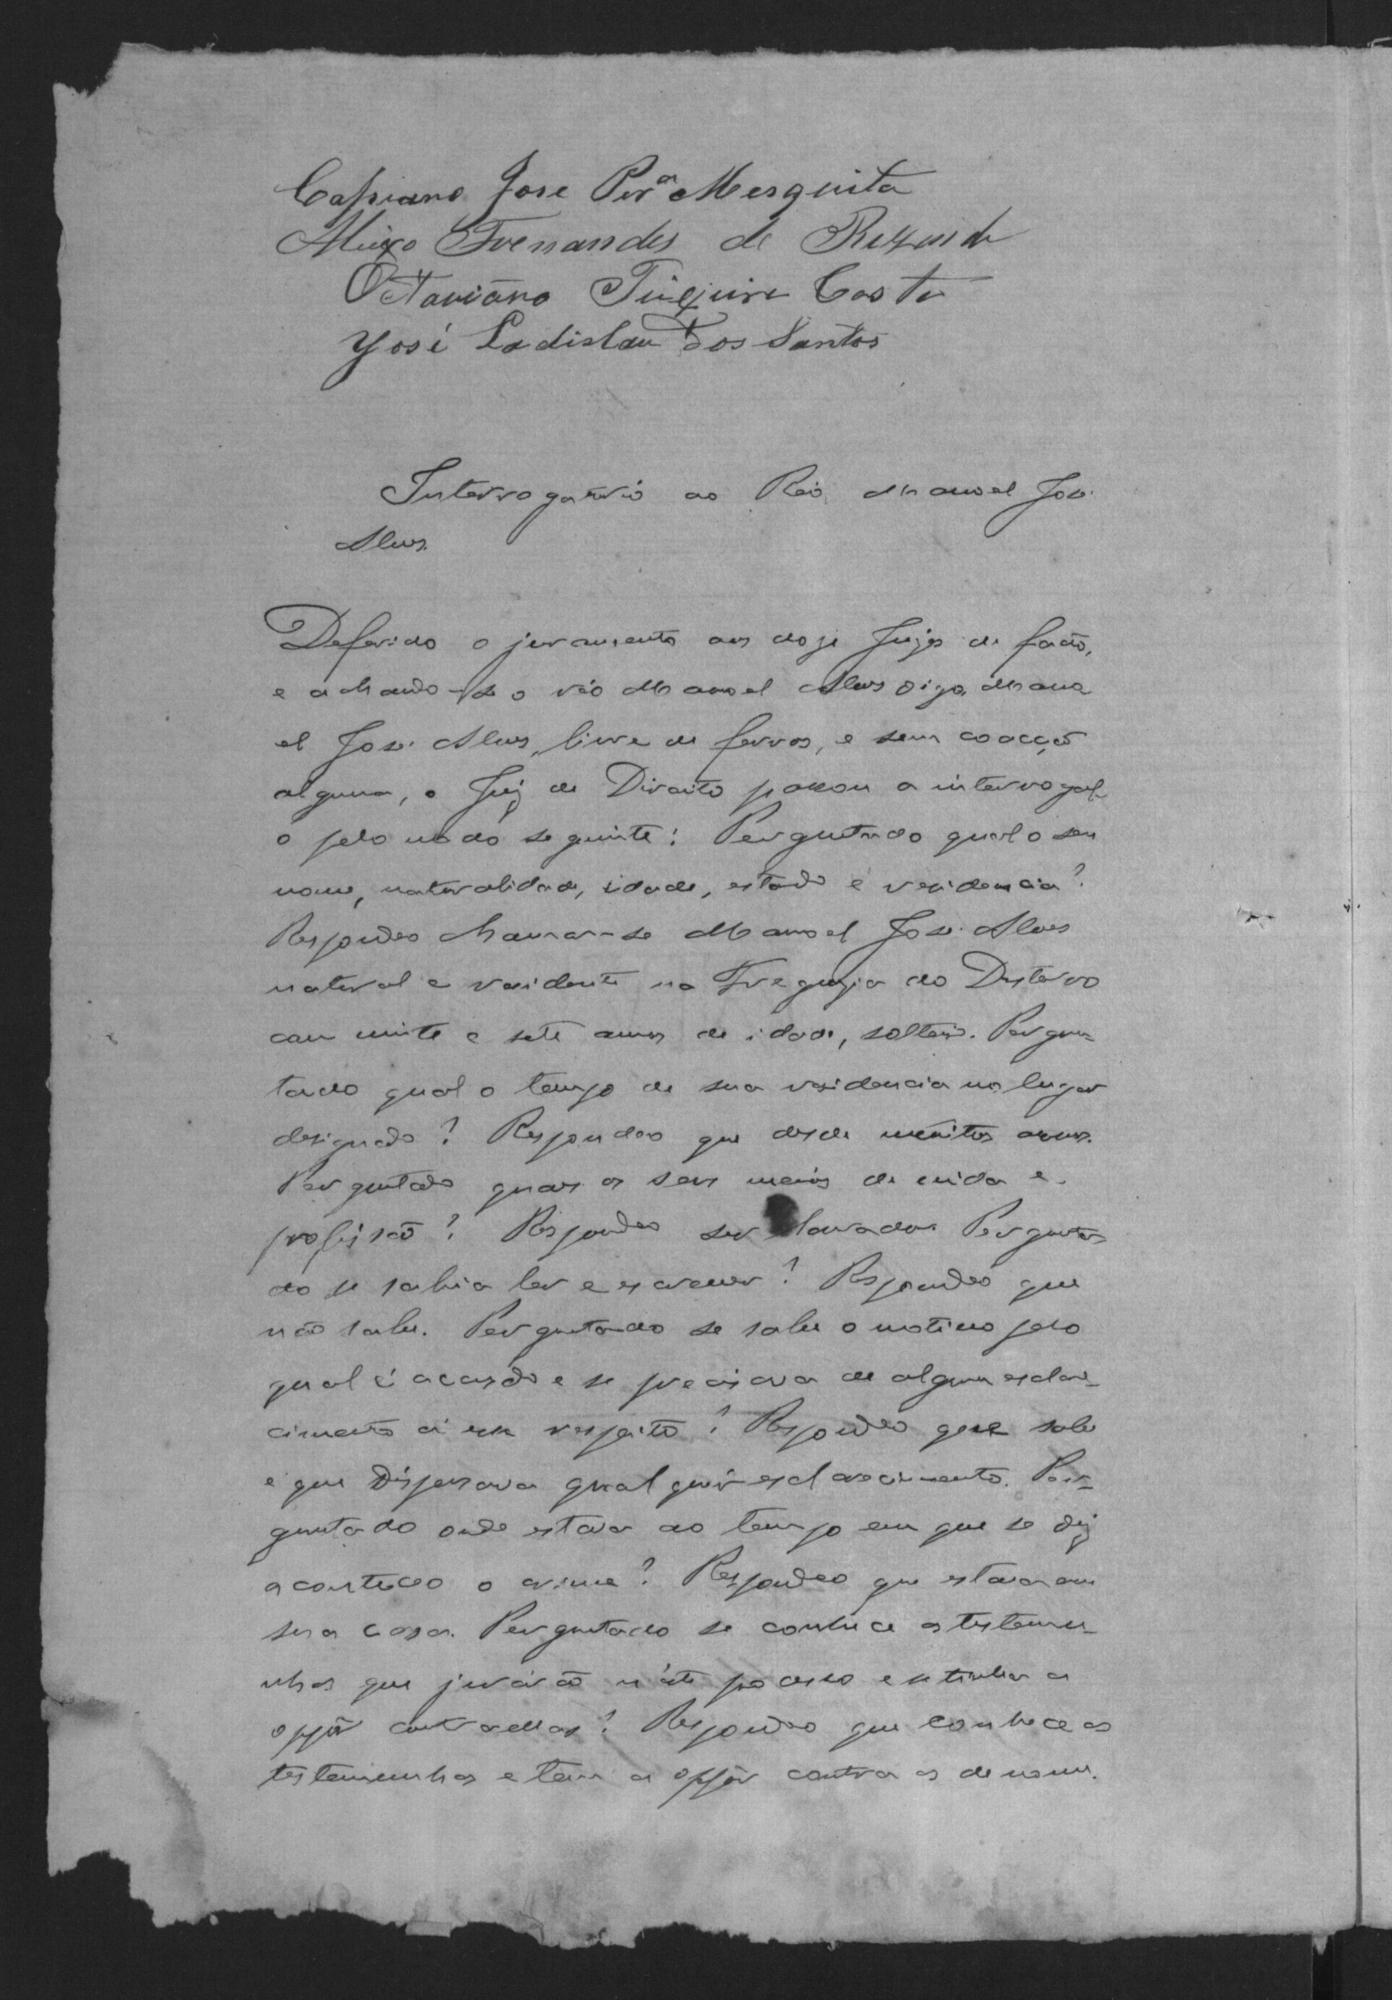 Capriano Jose Per.a Mesquita
Aleixo Fernandes de Rezende
Octaviano Siqueira Costa
José Ladislau dos Santos
Interrogatorio ao Reo Manoel José
Alves
Deferido o juramento aos doze Juizes de facto,
e achando-se o réo Manoel Alves digo Mano
el José Alves, livre de ferros, e sem coacção
alguma, o Juiz de Direito passou a interrogal-
o pelo modo seguinte: Perguntado qual o seu
nome, naturalidade, idade, estado e residencia?
Respondeo chamar-se Manoel José Alves
natural e residente na Freguezia do Desterro
com vinte e sete annos de idade, solteiro. Pergun-
tado qual o tempo de sua residencia no lugar
designado? Respondeo que desde muitos annos.
Perguntado quaes os seus meios de vida e
profissão? Respondeo ser lavrador Pergunta
do se sabia ler e escrever? Respondeo que
não sabe. Perguntado se sabe o motivo pelo
qual é acusado e se precisava de algum esclare-
cimento á esse respeito? Respondeo que sabe
e que dispensava qualquer esclarecimento. Per-
guntado onde estava ao tempo em que se diz
aconteceo o crime? Respondeo que estava em
sua casa. Perguntado se conhece as testemu-
nhas que jurárão n'este processo e se tinha a
oppôr contra ellas? Respondeo que conhece as
testemunhas e tem a oppôr contra as de nome